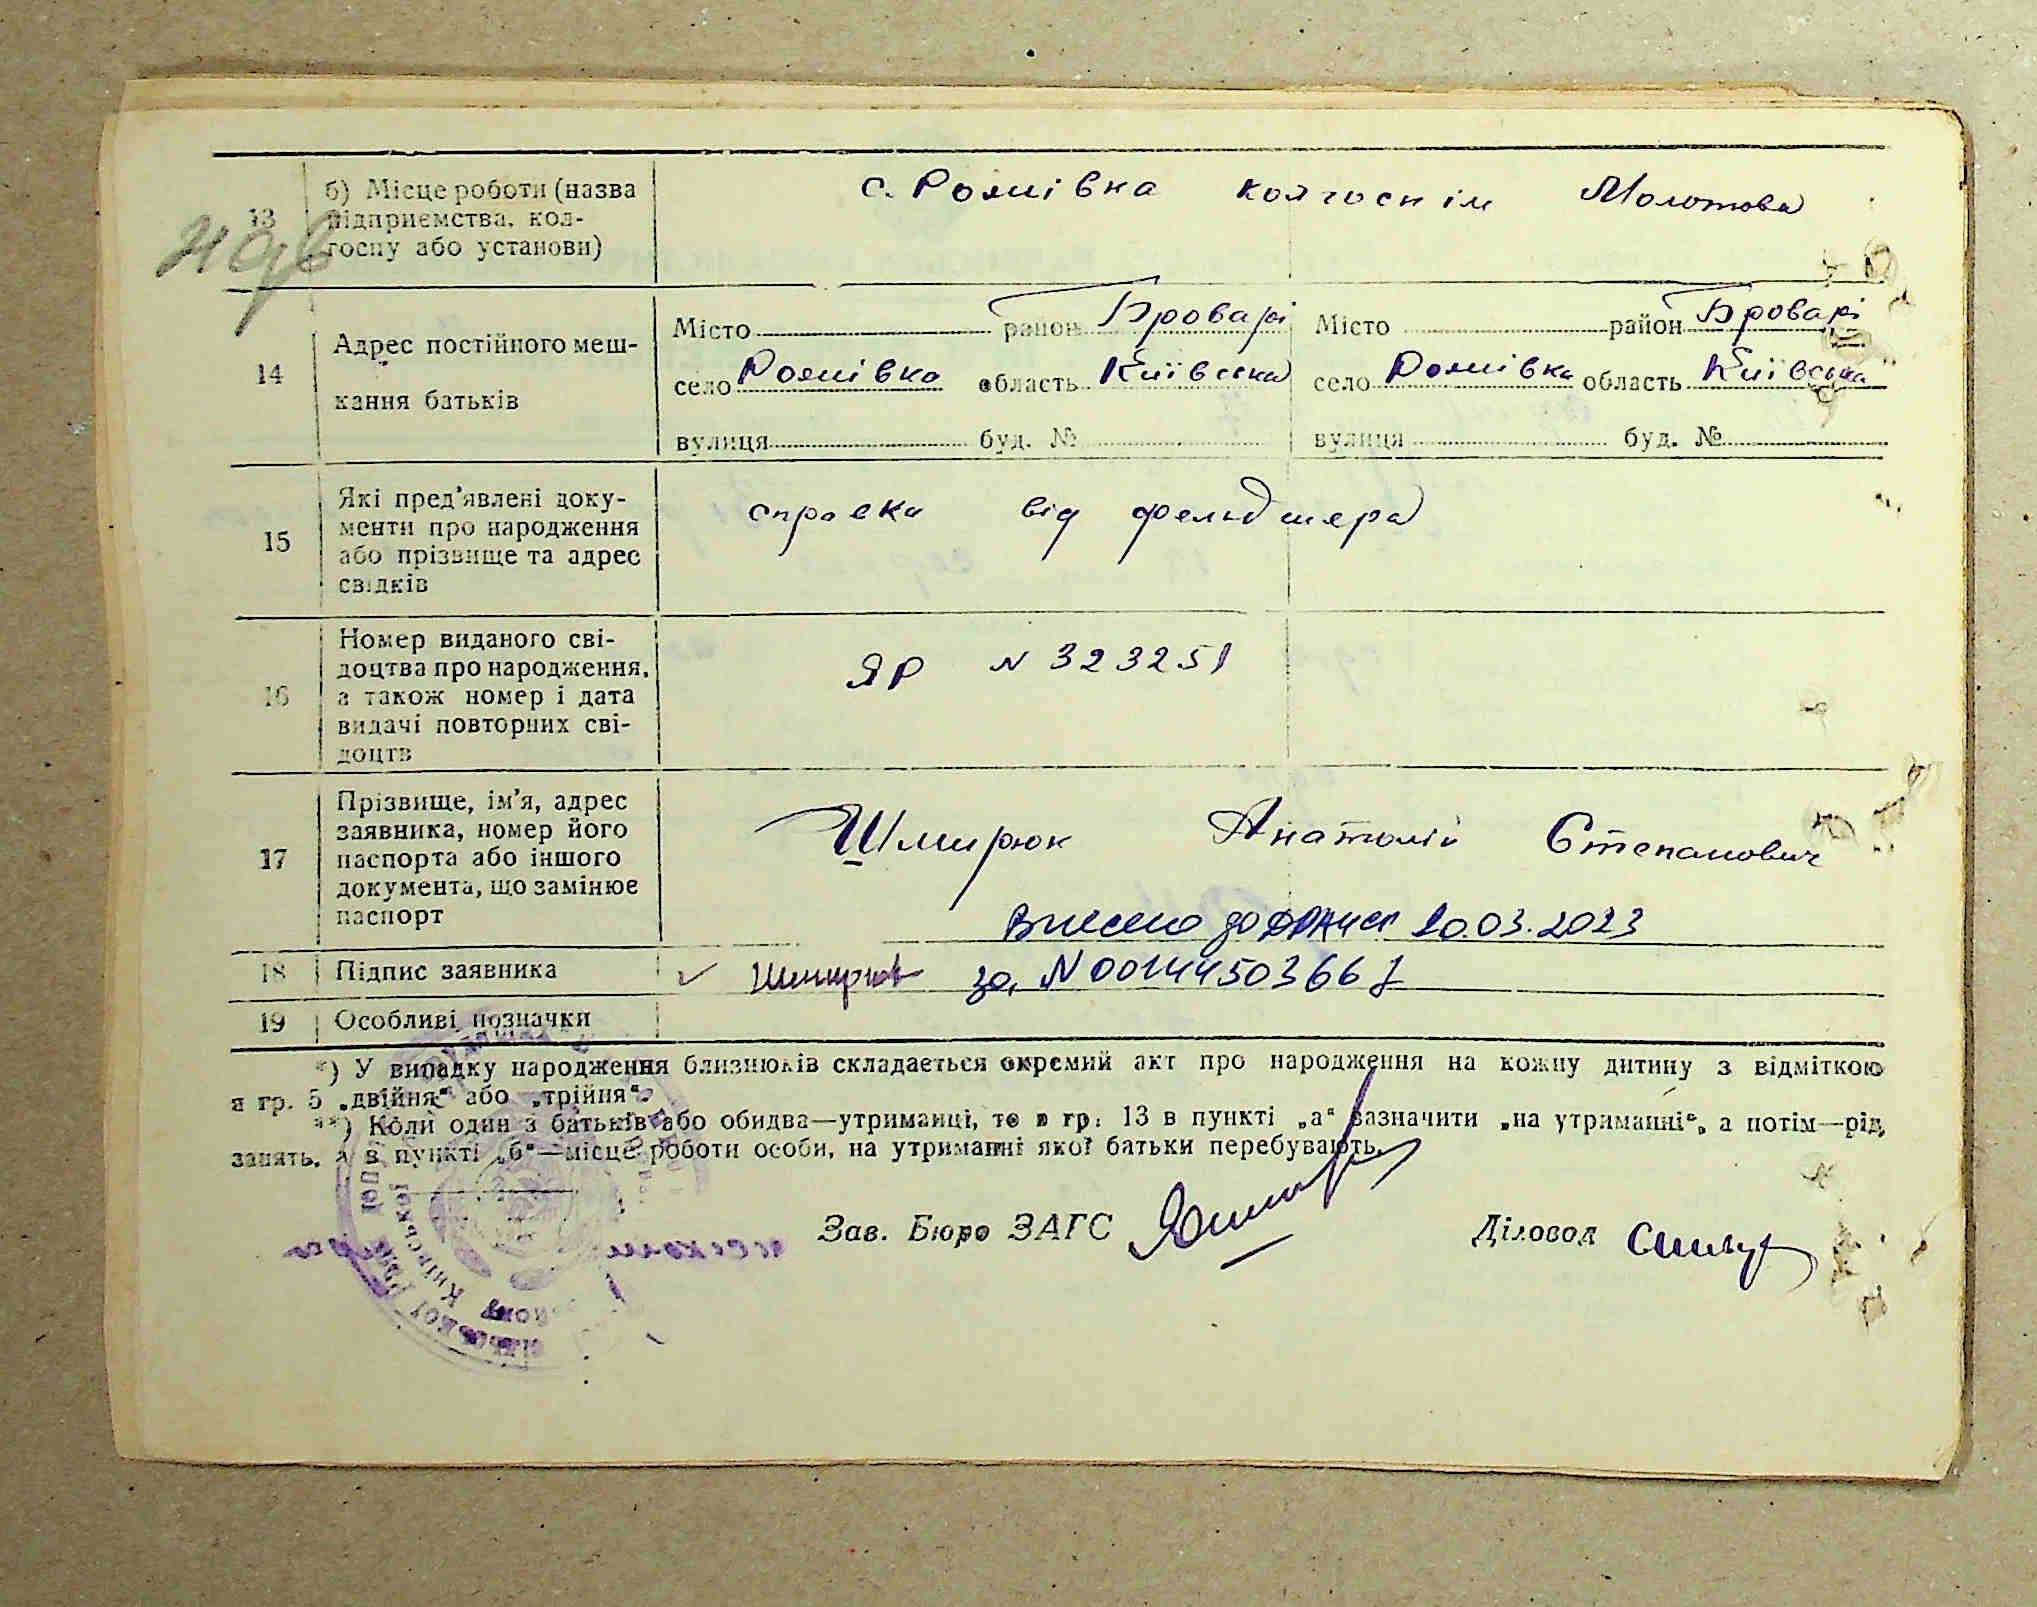 13 б) Місце роботи (назва підприємства, колгоспу або установи) с. Рожівка колгосп ім Молотова
14 Адрес постійного мешкання батьків
Місто район Броварі Місто район Броварі
село Рожівка область Київська село Рожівка область Київська
вулиця буд. № вулиця буд. №
15 Які пред'явлені документи про народження або прізвище та адрес свідків справка від фельдшера
16 Номер виданого свідоцтва про народження, а також номер і дата видачі повторних свідоцтв ЯР N 323251
17 Прізвище, ім'я, адрес заявника, номер його паспорта або іншого документа, що замінює паспорт Шмирюк Анатолій Степанович
Внесено до ДРАЦСГ 20.03.2023
18 Підпис заявника Шмирюк за, N 00144503667
19 Особливі позначки
*) У випадку народження близнюків складається окремий акт про народження на кожну дитину з відміткою
в гр. 5 „двійня“ або „трійня“.
**) Коли один з батьків або обидва—утриманці, то в гр. 13 в пункті „а“ зазначити „на утриманні“, а потім—рід
занять, а в пункті „б“—місце роботи особи, на утриманні якої батьки перебувають.
Зав. Бюро ЗАГС Діловод